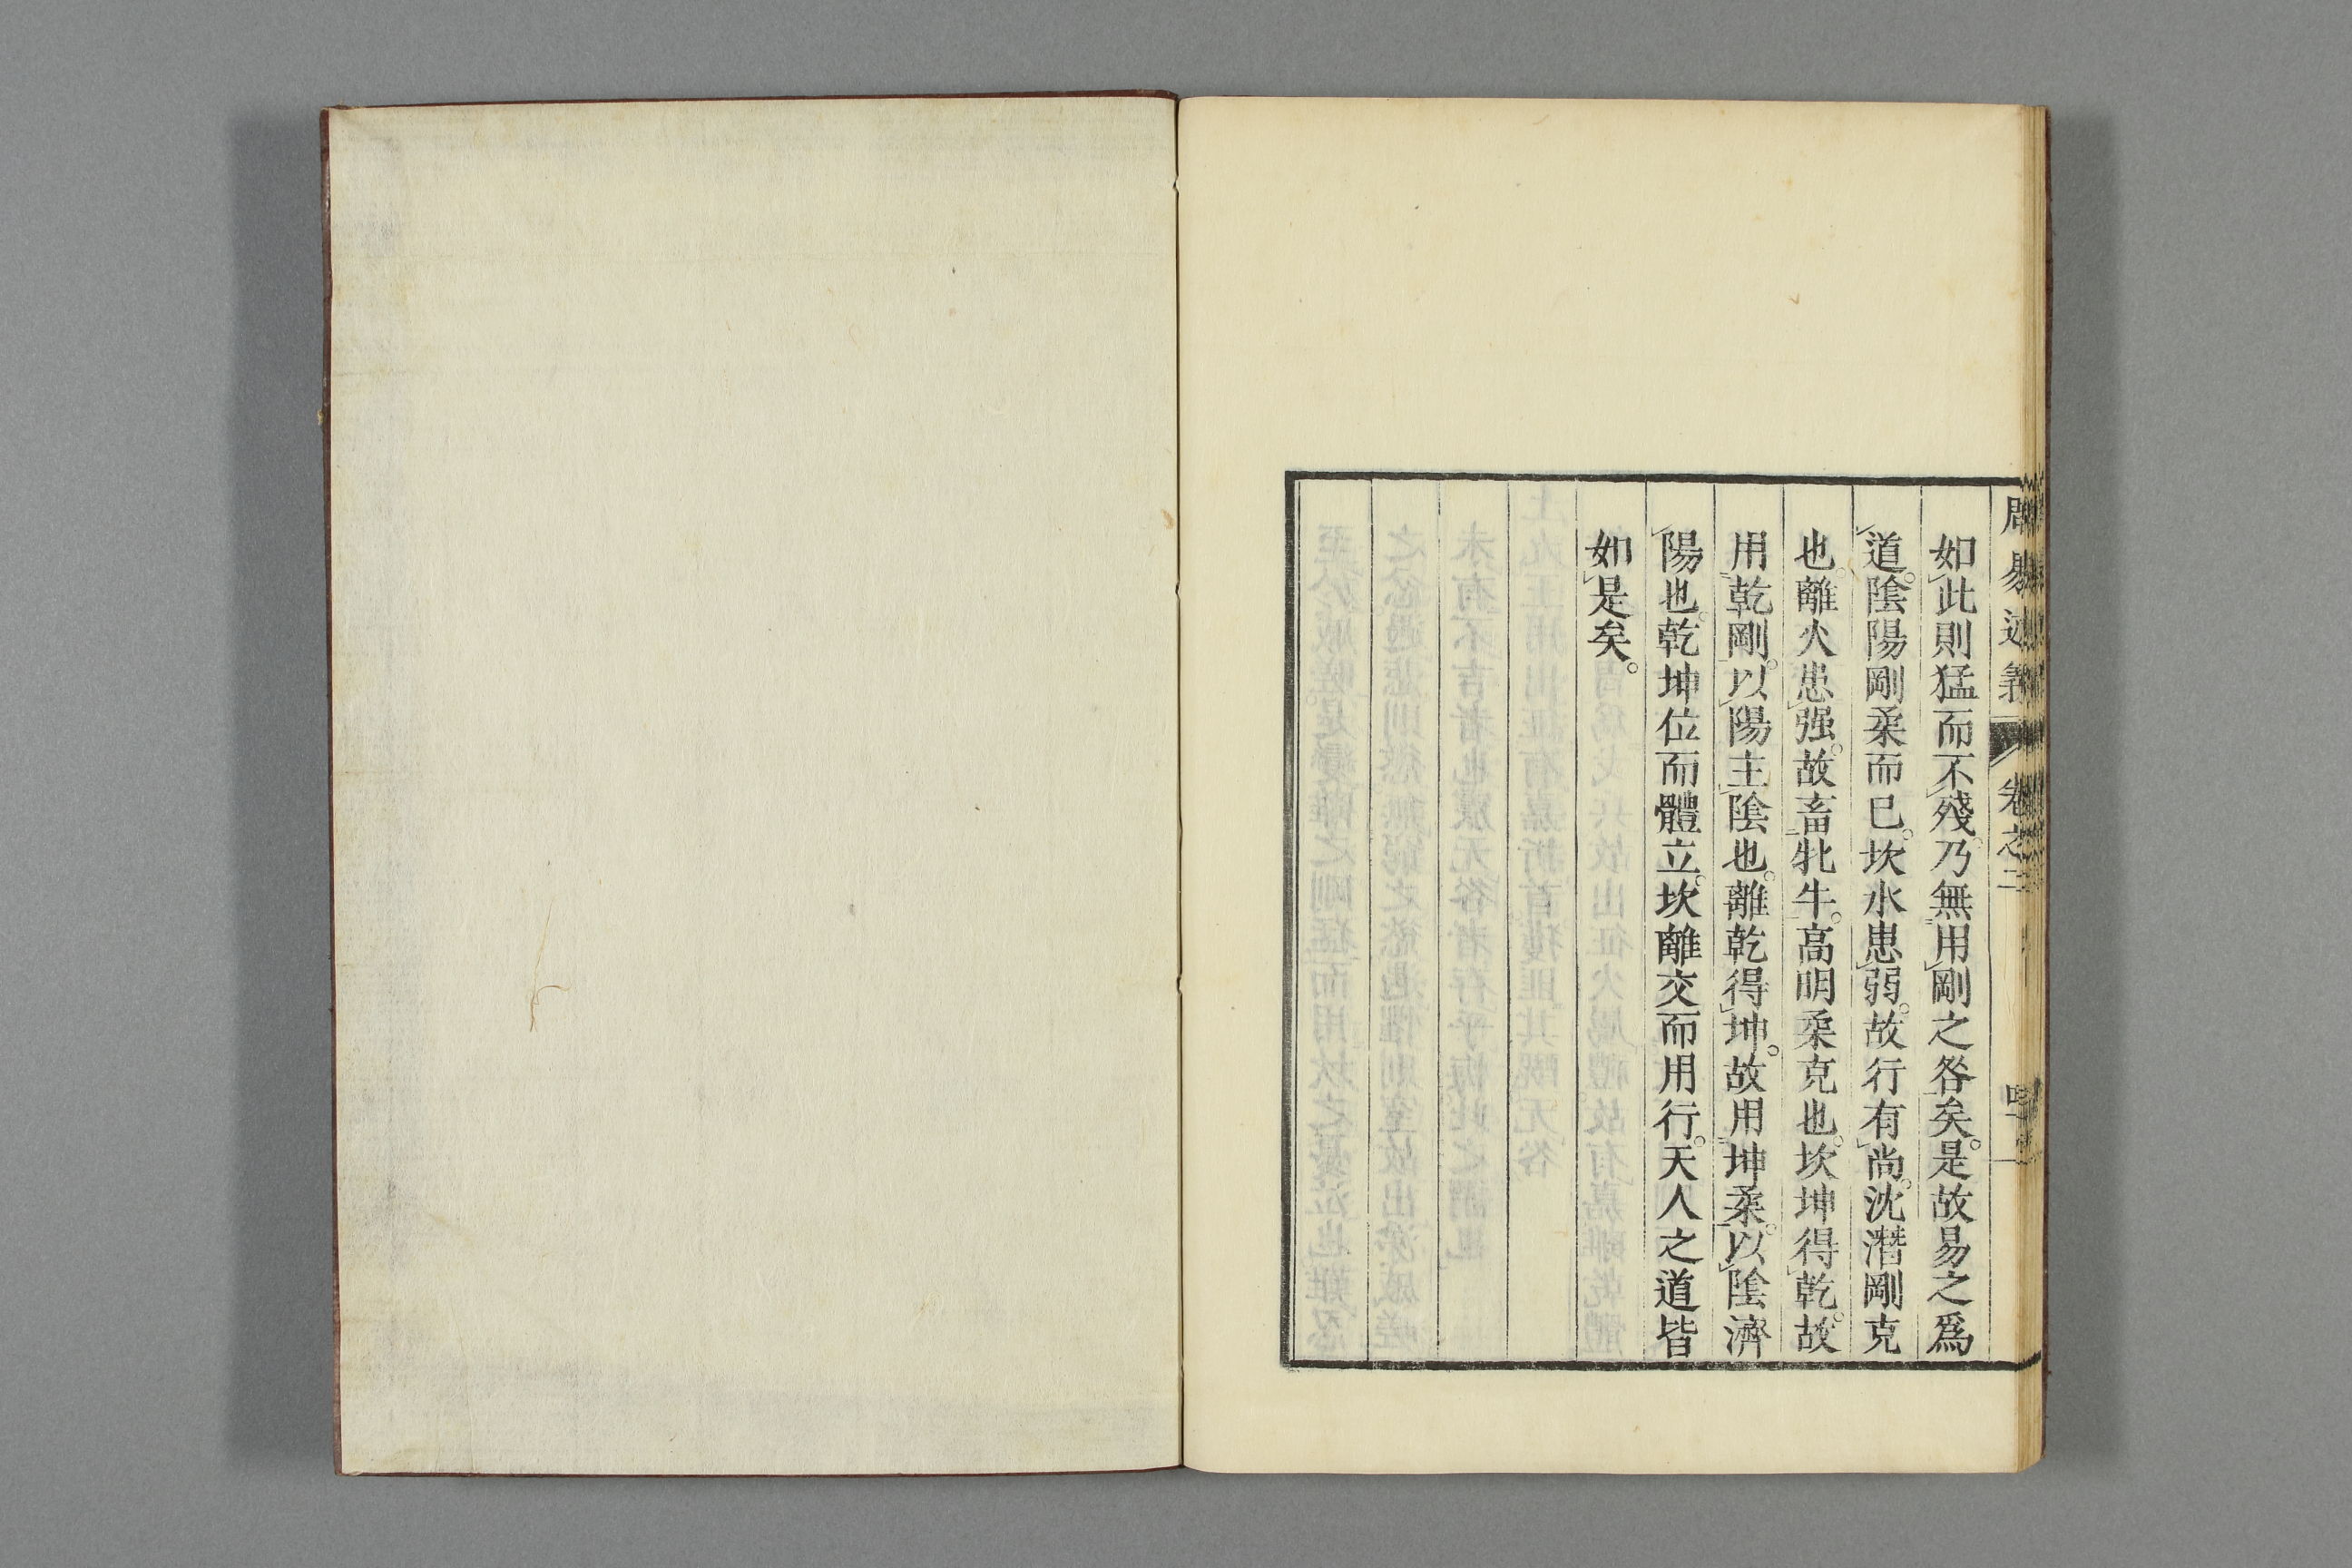 周易述義 卷之二
如此則猛而不殘。乃無用剛之咎矣。是故易之爲
道。陰陽剛柔而已。坎水患弱。故行有尚。沈潛剛克
也。離火患强。故畜牝牛。高明柔克也。坎坤得乾。故
用乾剛。以陽主陰也。離乾得坤。故用坤柔。以陰濟
陽也。乾坤位而體立。坎離交而用行。天人之道皆
如是矣。